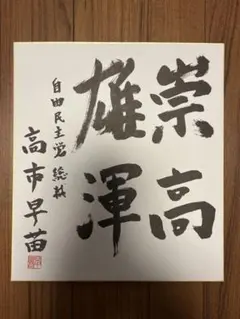 崇高
雄渾
自由民主党 総裁
高市早苗